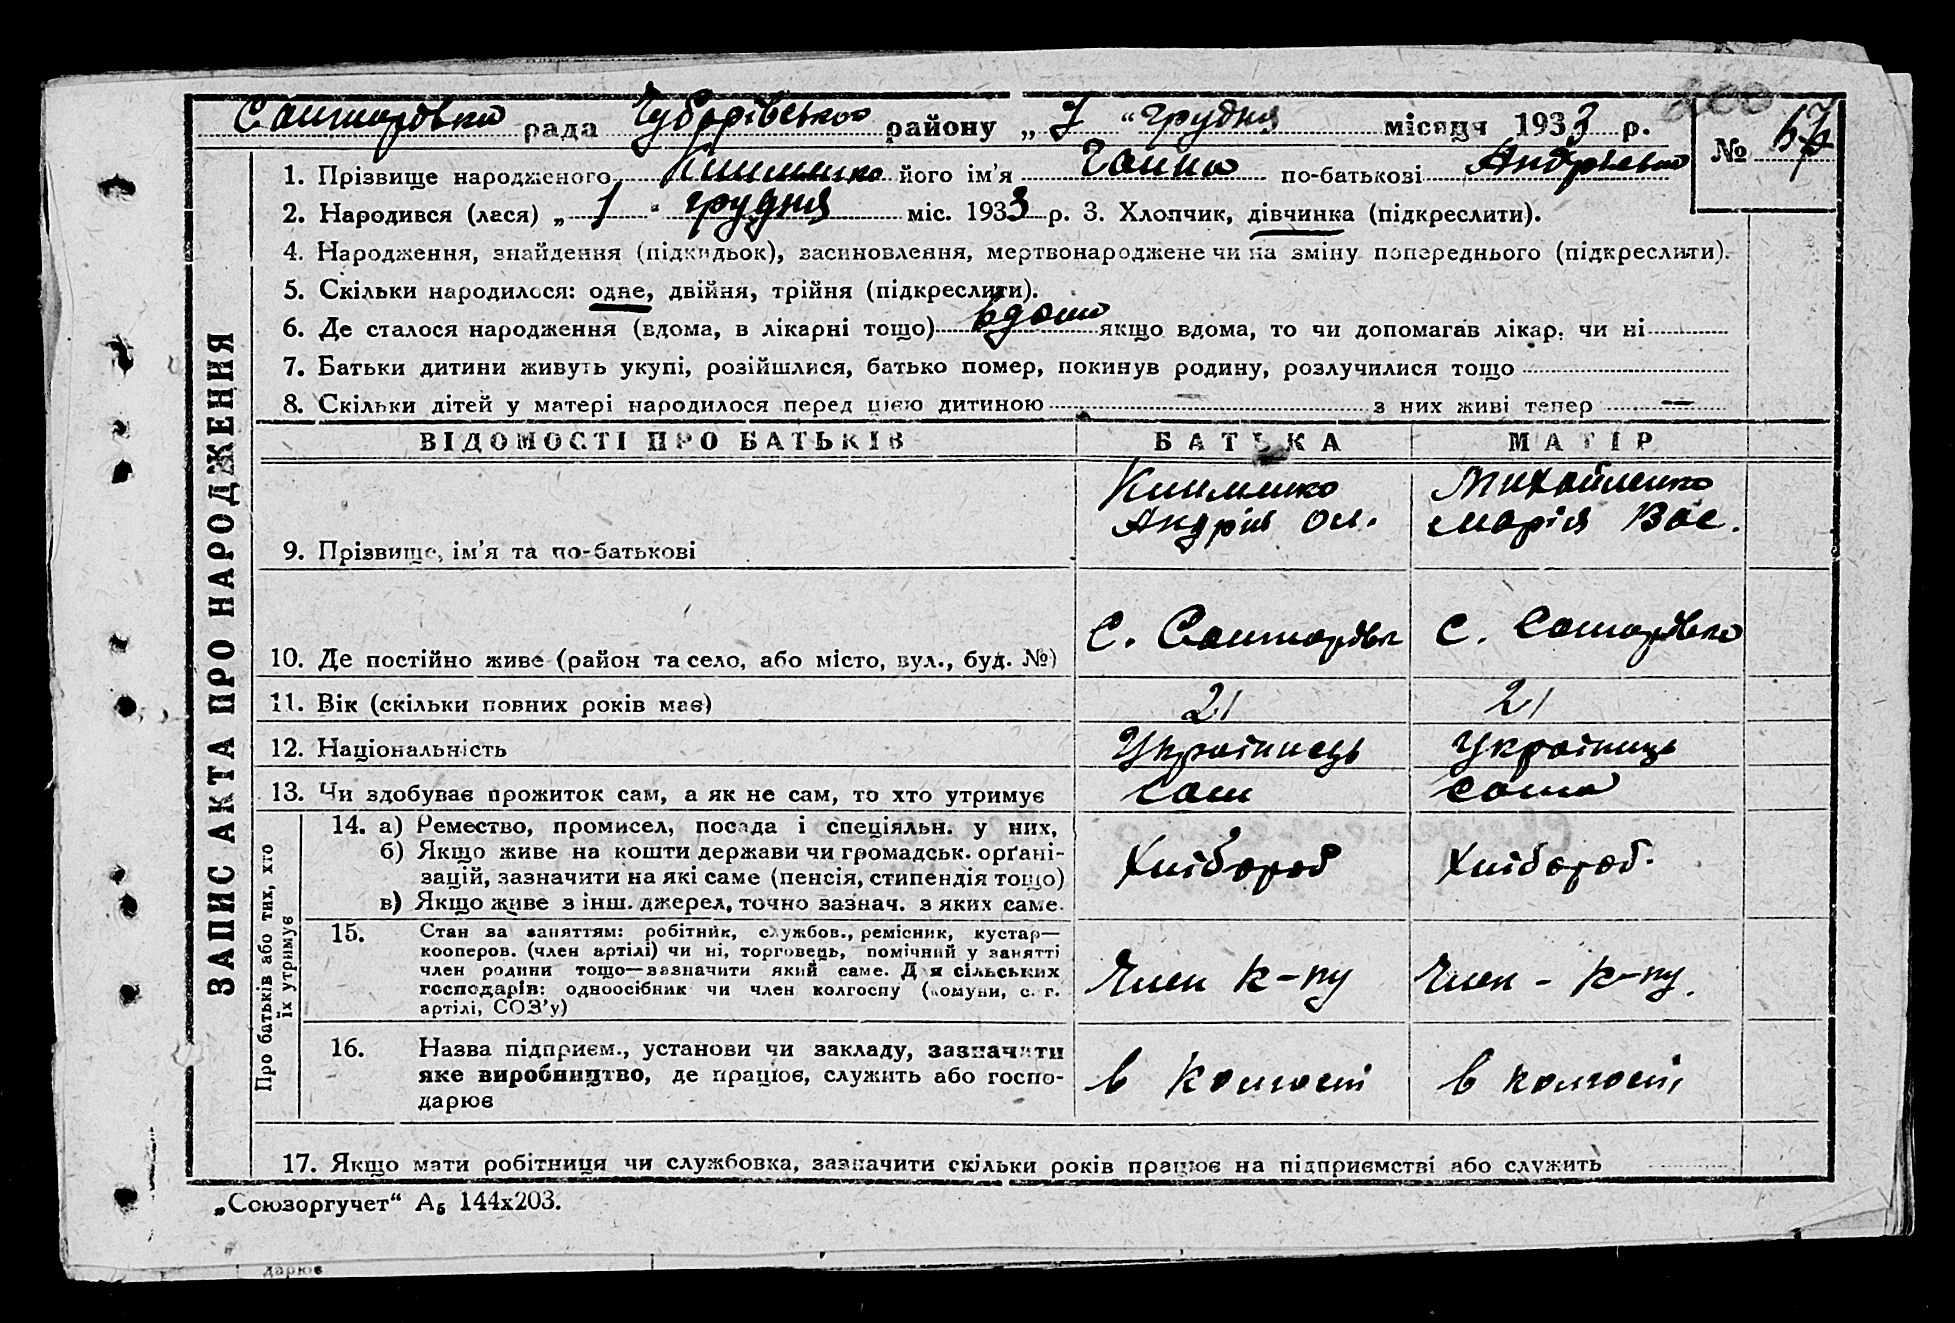 рада Чубарівського району „ 7 “ грудня місяця 1933 р.
№ 67
1. Прізвище народженого Клименко його ім’я Ганна по-батькові Андріївна
2. Народився (лася) „ 1 “ грудня міс. 1933 р. 3. Хлопчик, дівчинка (підкреслити).
4. Народження, знайдення (підкидьок), засиновлення, мертвонароджене чи на зміну попереднього (підкреслити).
5. Скільки народилося: одне, двійня, трійня (підкреслити).
6. Де сталося народження (вдома, в лікарні тощо) вдома якщо вдома, то чи допомагав лікар. чи ні
7. Батьки дитини живуть укупі, розійшлися, батько помер, покинув родину, розлучилися тощо
8. Скільки дітей у матері народилося перед цією дитиною — з них живі тепер —
ЗАПИС АКТА ПРО НАРОДЖЕННЯ
ВІДОМОСТІ ПРО БАТЬКІВ БАТЬКА МАТІР
9. Прізвище, ім’я та по-батькові
Клименко
Андрій Ол.
Михайленко
Марія Вас.
10. Де постійно живе (район та село, або місто, вул., буд. №)
с.
с.
11. Вік (скільки повних років має) 21 21
12. Національність Українець Українець
13. Чи здобуває прожиток сам, а як не сам, то хто утримує сам сама
Про батьків або тих, хто
їх утримує
14. а) Ремество, промисел, посада і спеціяльн. у них,
б) Якщо живе на кошти держави чи громадськ. орґані-
зацій, зазначити на які саме (пенсія, стипендія тощо)
в) Якщо живе з інш. джерел, точно зазнач. з яких саме.
Хлібороб Хлібороб.
15. Стан за заняттям: робітник, службов., ремісник, кустар—
кооперов. (член артілі) чи ні, торговець, помічний у занятті
член родини тощо—зазначити який саме. Для сільських
господарів: одноосібник чи член колгоспу (комуни, с. г.
артілі, СОЗ’у)
Член к-пу Член - к-пу.
16. Назва підприєм., установи чи закладу, зазначити
яке виробництво, де працює, служить або госпо-
дарює
в колгоспі в колгоспі
17. Якщо мати робітниця чи службовка, зазначити скільки років працює на підприємстві або служить
„Союзоргучет“ А₅ 144х203.
дарює